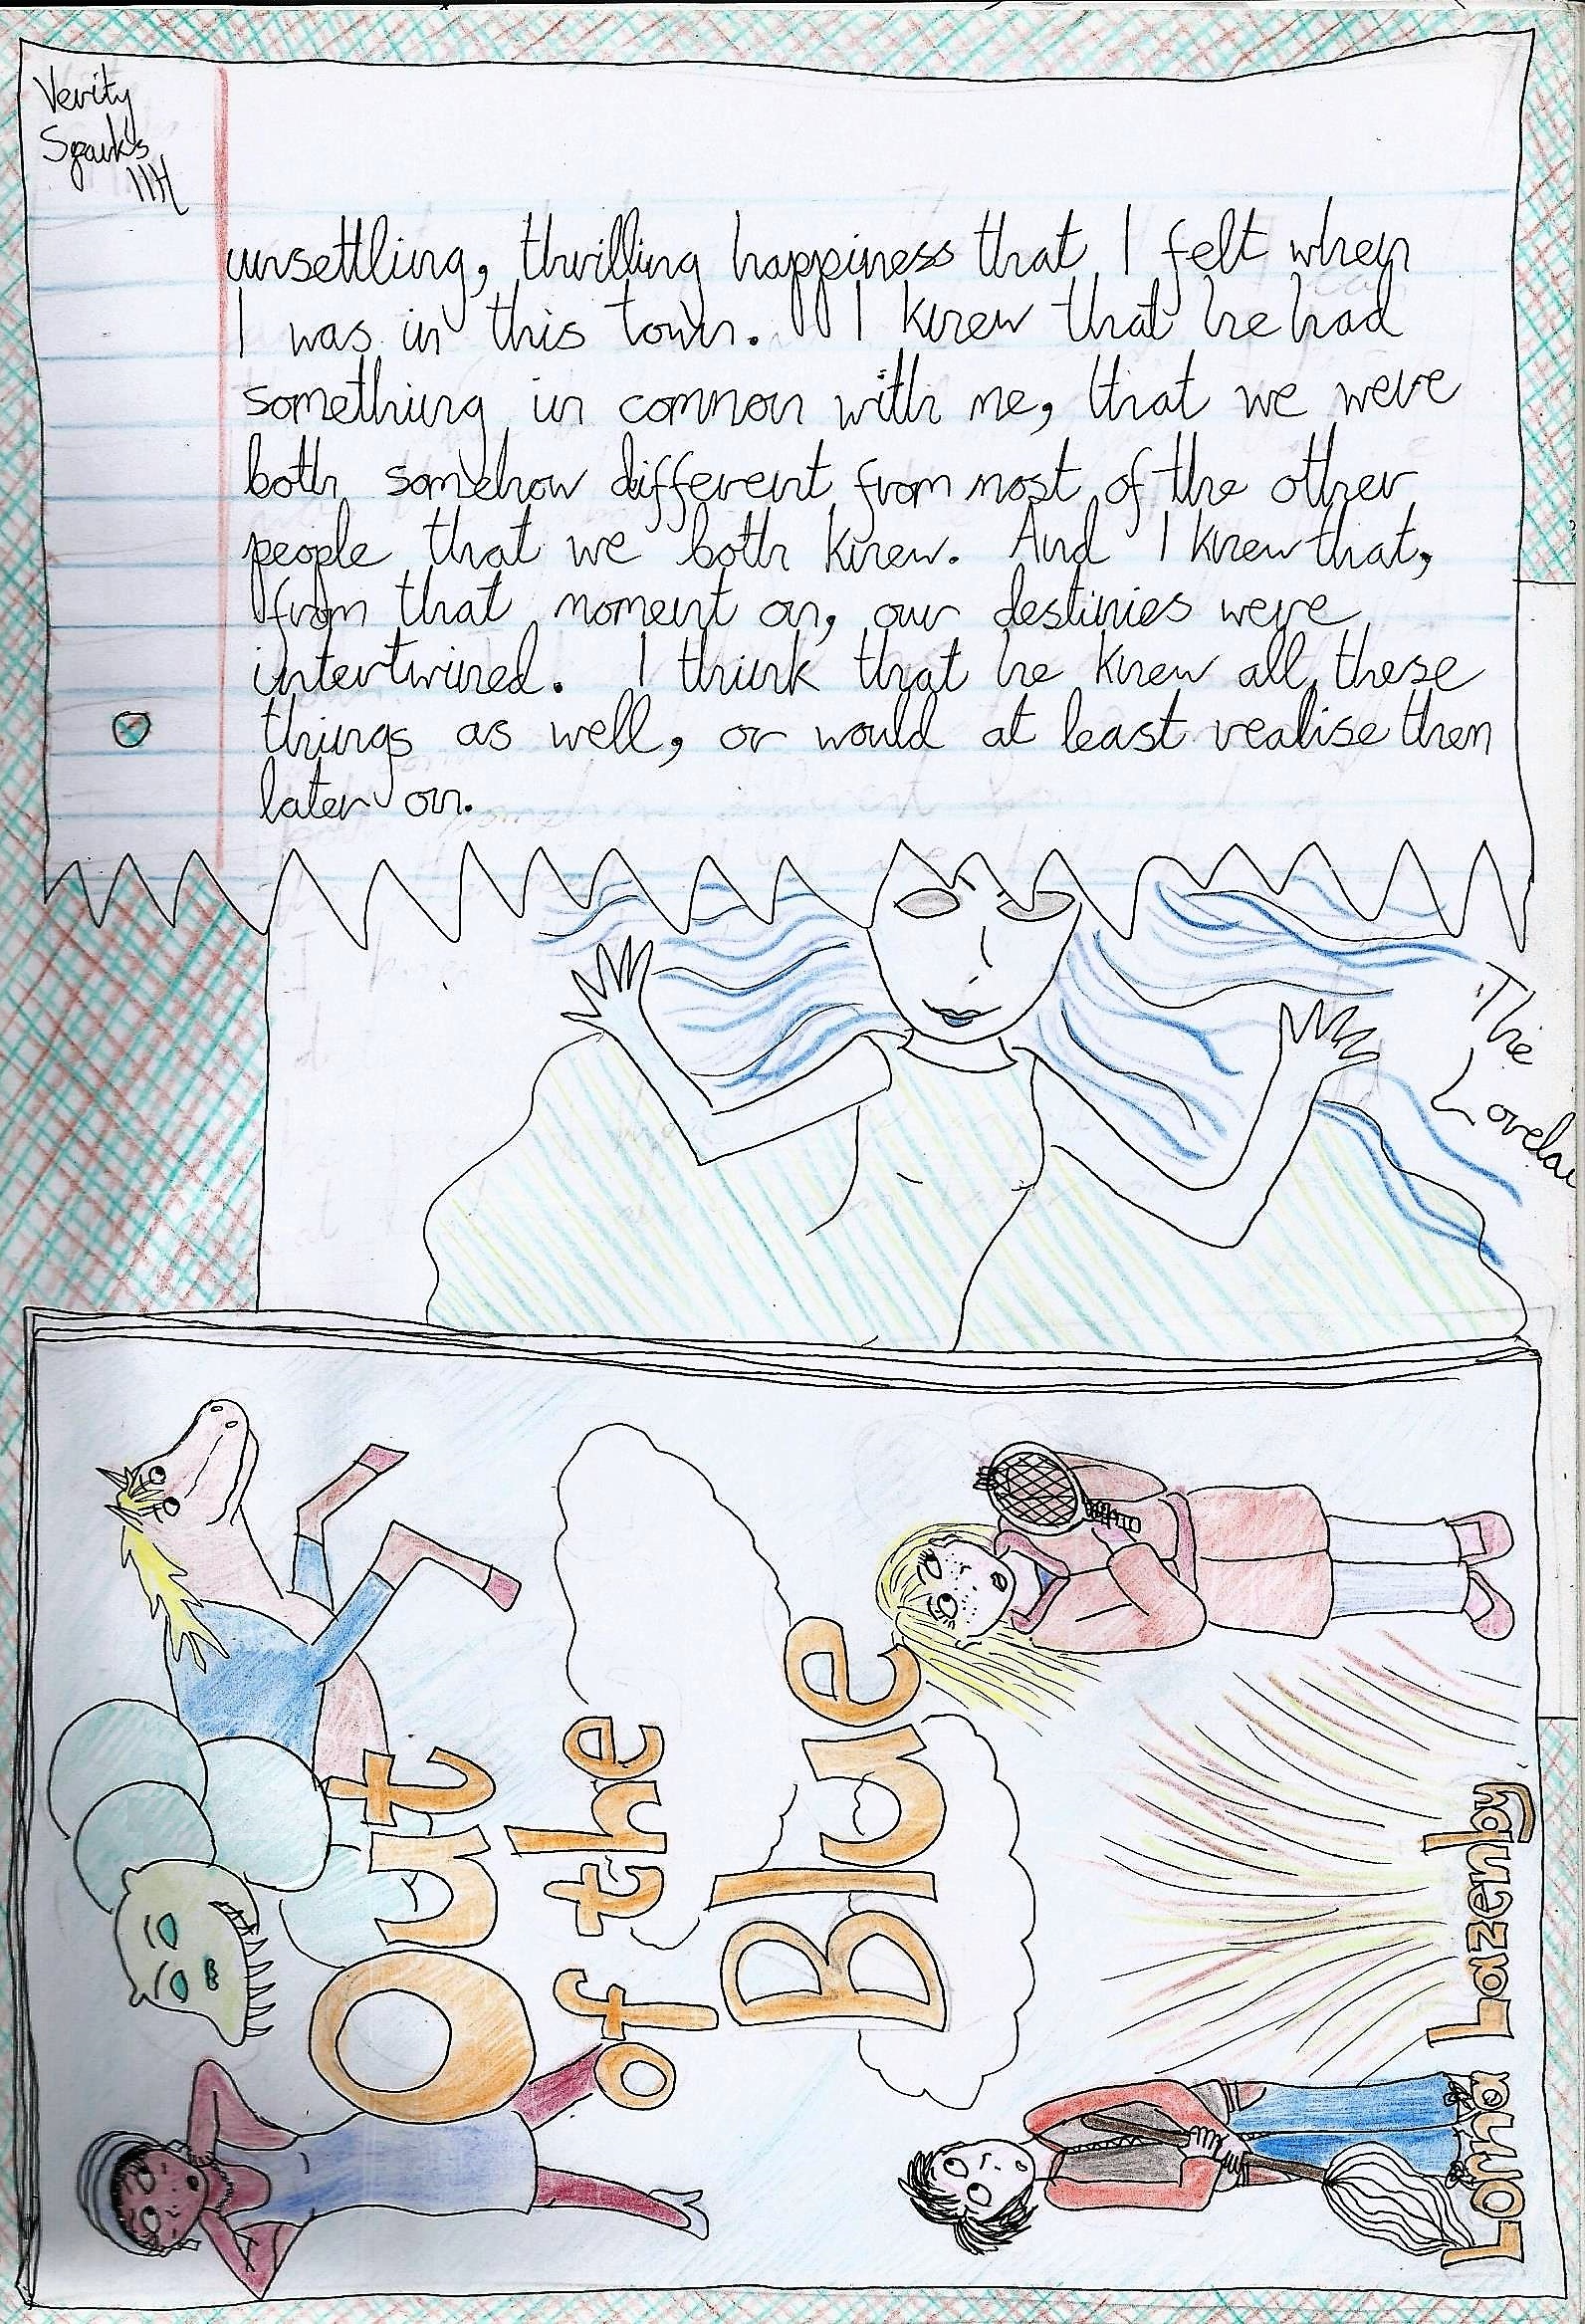 Verity
Sparks
11H
unsettling, thrilling happiness that I felt when
I was in this town. I knew that he had
something in common with me, that we were
both somehow different from most of the other
people that we both knew. And I knew that,
from that moment on, our destinies were
intertwined. I think that he knew all these
things as well, or would at least realise them
later on.
The
Lovela
Out
of the
Blue
Lorna Lazenby